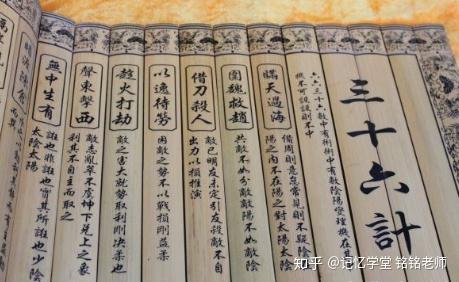 三十六計
六六三十六數中有術術中有數陰陽燮理機在其中
機不可設設則不中
瞞天過海
備周則意怠常見則不疑陰
陽之內不在陽之對太陽太陰
圍魏救趙
共敵不如分敵敵陽不如敵陰
借刀殺人
敵已明友未定引友殺敵不自
出力以損推演
以逸待勞
困敵之勢不以戰損剛益柔
趁火打劫
敵之害大就勢取利剛決柔也
聲東擊西
敵志亂萃不虞坤下兌上之象
利其不自主而取之
無中生有
誑也非誑也實其所誑也少陰
太陰太陽
知乎 @记忆学堂 铭铭老师